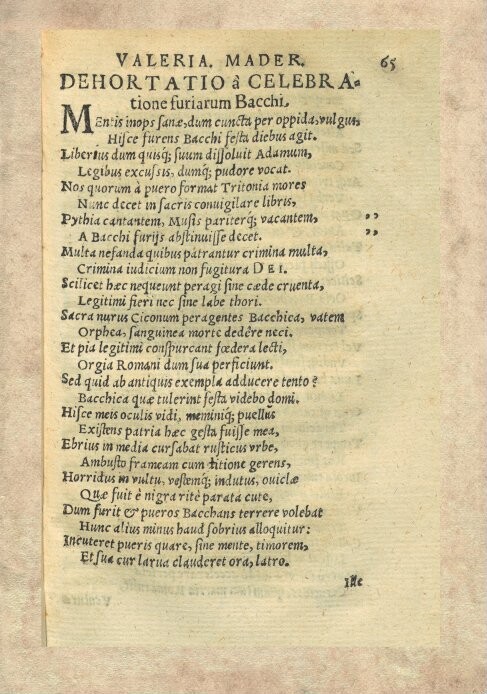 VALERIA. MADER. 65
DEHORTATIO â CELEBRA-
tione furiarum Bacchi.
MEntis inops sanæ, dum cuncta per oppida, vulgus,
Hisce furens Bacchi festa diebus agit.
Liberius dum quisq; suum dissoluit Adamum,
Legibus excussis, dumq; pudore vocat.
Nos quorum à puero format Tritonia mores
Nunc decet in sacris convigilare libris,
Pythia cantantem, Musis pariterq; vacantem, ,,
A Bacchi furijs abstinuisse decet. ,,
Multa nefanda quibus patrantur crimina multa,
Crimina iudicium non fugitura DEI.
Scilicet hæc nequeunt peragi sine cæde cruenta,
Legitimi fieri nec sine labe thori.
Sacra nurus Ciconum peragentes Bacchica, vatem
Orphea, sanguinea morte dedêre neci.
Et pia legitimi conspurcant fœdera lecti,
Orgia Romani dum sua perficiunt.
Sed quid ab antiquis exempla adducere tento?
Bacchica quæ tulerint festa videbo domi.
Hisce meis oculis vidi, meminiq; puellus
Existens patria hæc gesta fuisse mea,
Ebrius in media cursabat rusticus vrbe,
Ambusto frameam cum titione gerens,
Horridus in vultu, vestemq; indutus, ouiclæ
Quæ fuit è nigra rite parata cute,
Dum furit & pueros Bacchans terrere volebat
Hunc alius minus haud sobrius alloquitur:
Incuteret pueris quare, sine mente, timorem,
Et sua cur larua clauderet ora, latro.
Ille